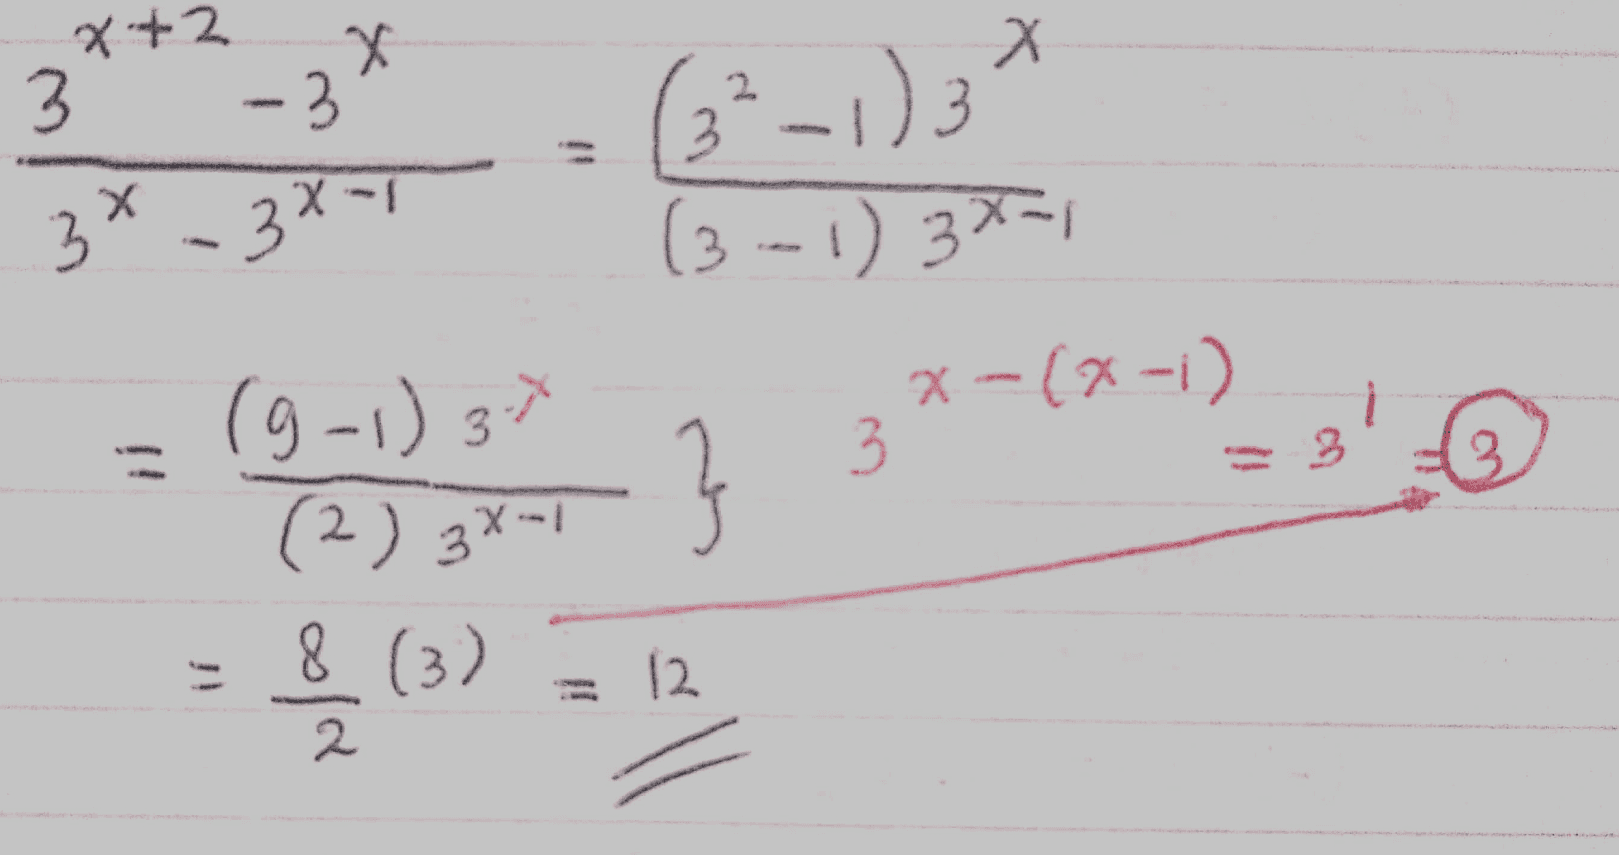 \frac{3^{x+2} - 3^{x}}{3^{x} - 3^{x-1}} = \frac{(3^{2} - 1) 3^{x}}{(3 - 1) 3^{x-1}}
= \frac{(9 - 1) 3^{x}}{(2) 3^{x-1}} } 3^{x-(x-1)} = 3^{1} = 3
= \frac{8}{2} (3) = 12